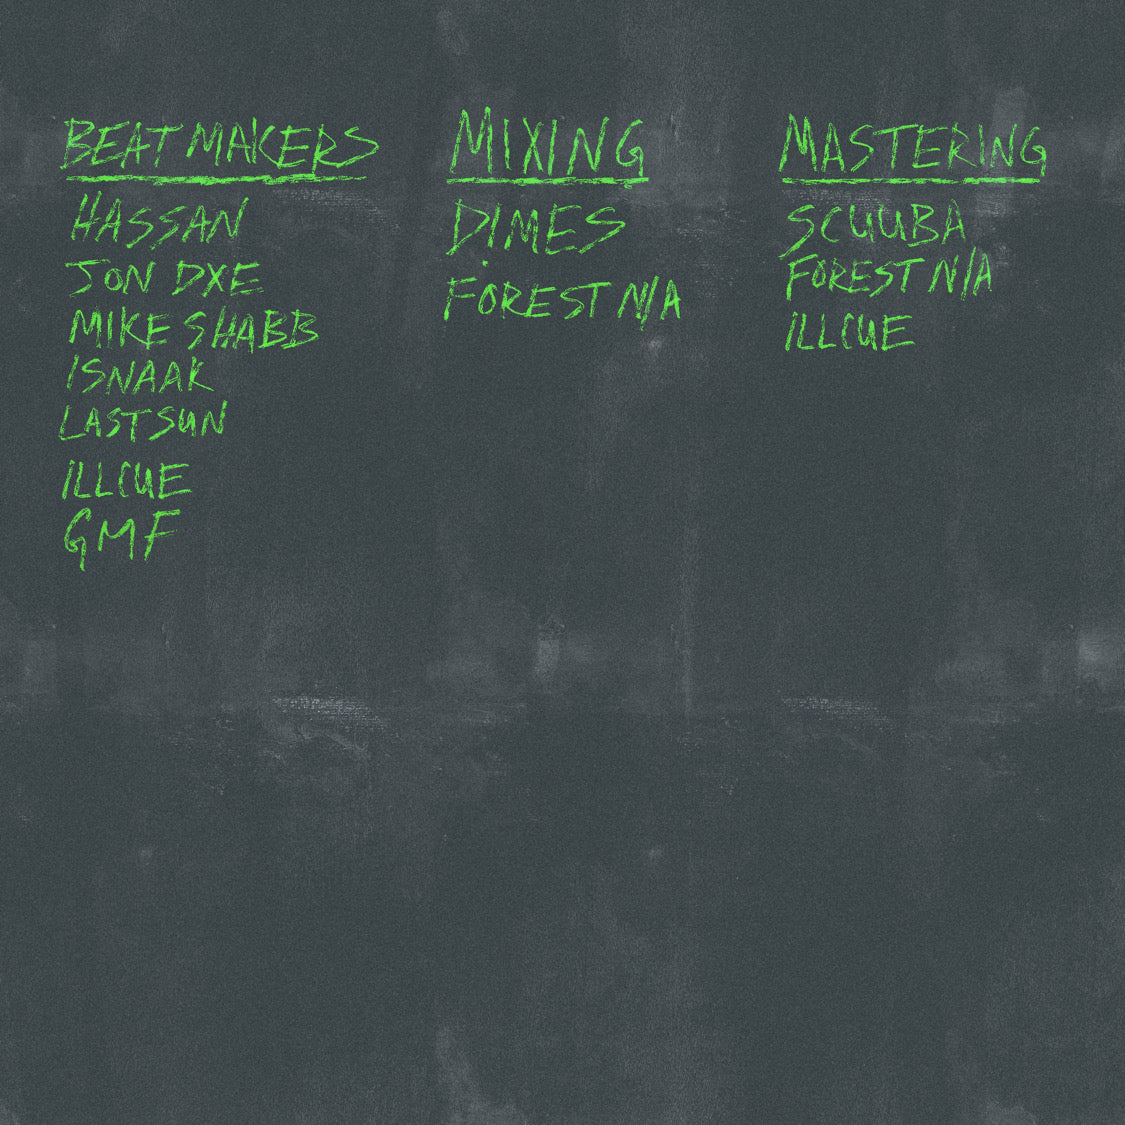 BEATMAKERS
HASSAN
JON DXE
MIKE SHABB
ISNAAK
LASTSUN
ILLCUE
GMF
MIXING
DIMES
FOREST N/A
MASTERING
SCUUBA
FOREST N/A
ILLCUE